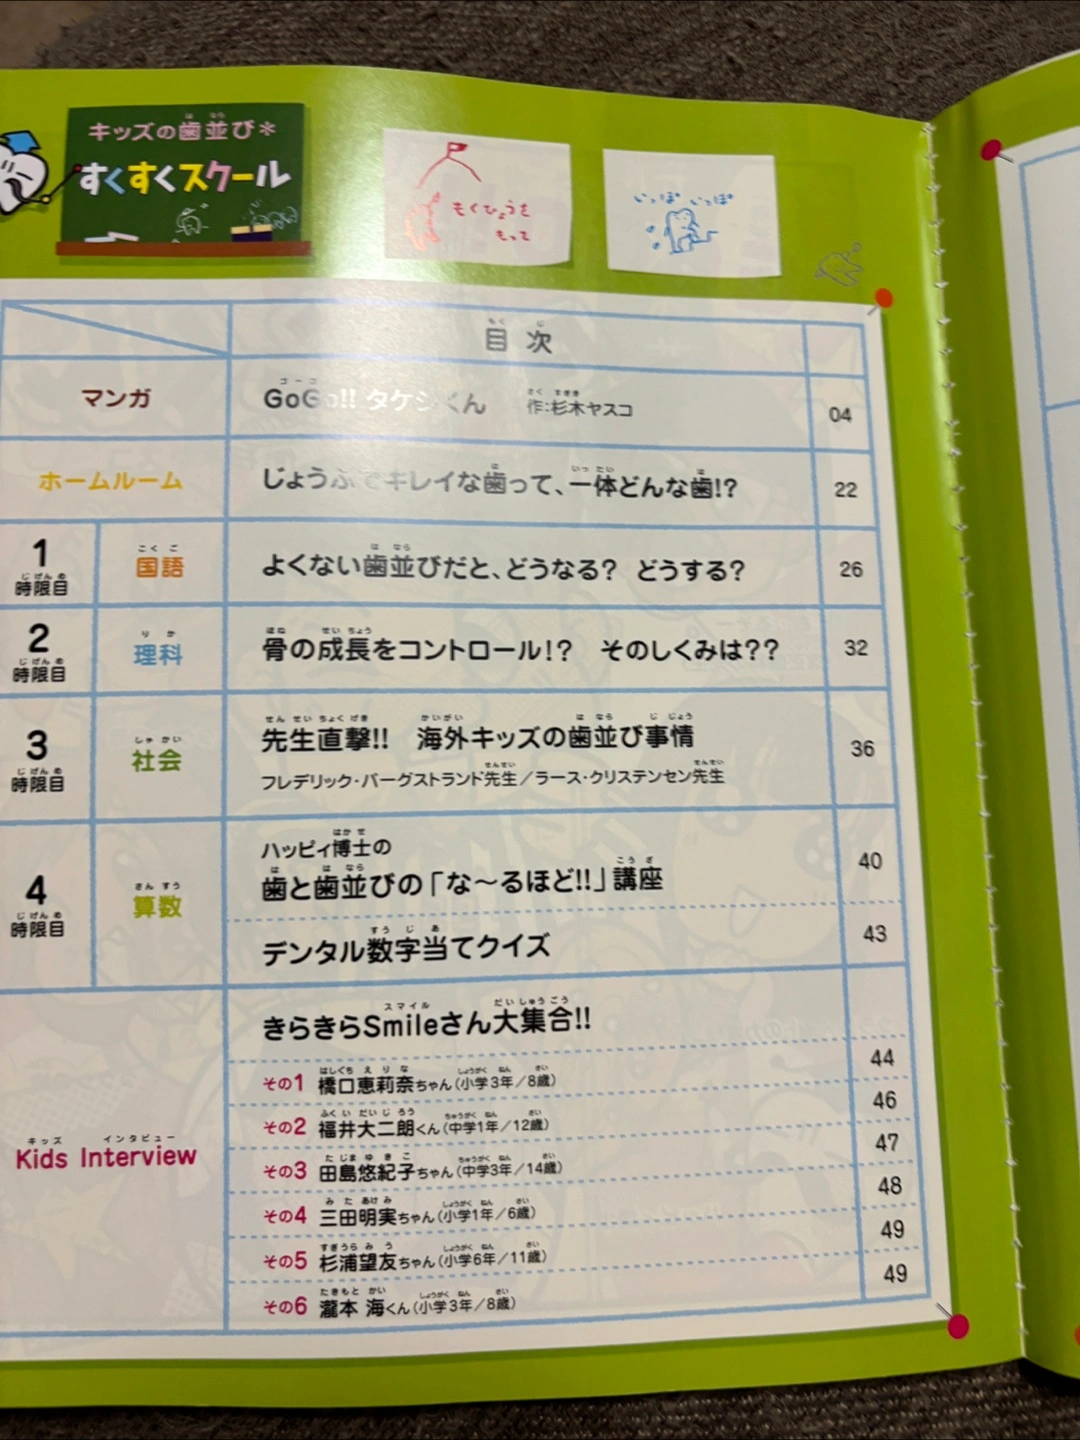 キッズの歯並び*
すくすくスクール
もくひょうを
もって
いっぽ いっぽ
目次
マンガ
GoGo!! タケシくん 作:杉木ヤスコ 04
ホームルーム
じょうぶでキレイな歯って、一体どんな歯!? 22
1時限目 国語 よくない歯並びだと、どうなる? どうする? 26
2時限目 理科 骨の成長をコントロール!? そのしくみは?? 32
3時限目 社会 先生直撃!! 海外キッズの歯並び事情 36
フレデリック・バーグストランド先生/ラース・クリステンセン先生
4時限目 算数 ハッピィ博士の
歯と歯並びの「な〜るほど!!」講座 40
デンタル数字当てクイズ 43
Kids Interview
きらきらSmileさん大集合!!
その1 橋口恵莉奈ちゃん(小学3年/8歳) 44
その2 福井大二朗くん(中学1年/12歳) 46
その3 田島悠紀子ちゃん(中学3年/14歳) 47
その4 三田明実ちゃん(小学1年/6歳) 48
その5 杉浦望友ちゃん(小学6年/11歳) 49
その6 瀧本 海くん(小学3年/8歳) 49